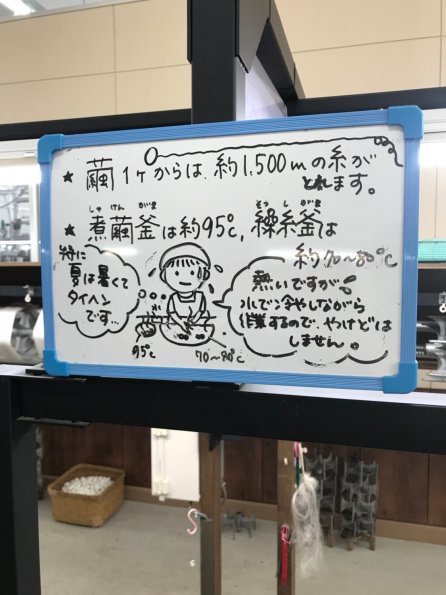 ★ 繭1ヶからは、約1,500mの糸が
とれます。
しゃ けん がま
そう し がま
★ 煮繭釜は約95℃、繰糸釜は
約70〜80℃
特に
夏は暑くて
タイヘン
です…
熱いですが
水で冷やしながら
作業するので、やけどは
しません。
95℃
70〜80℃